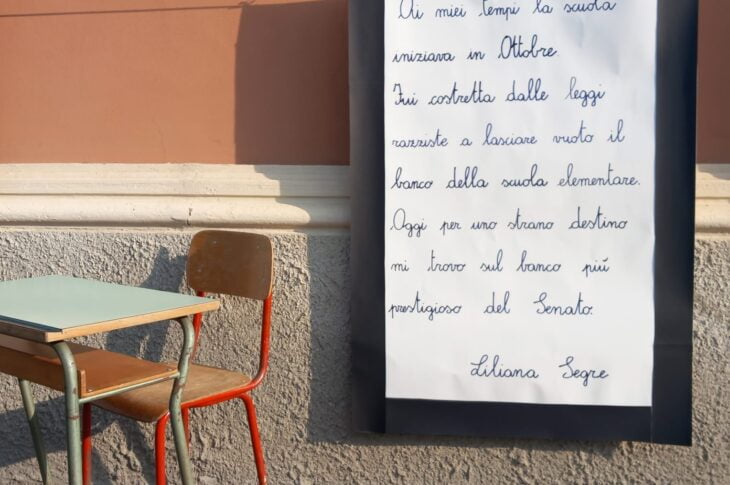 Ai miei tempi la scuola
iniziava in Ottobre.
Fui costretta dalle leggi
razziste a lasciare vuoto il
banco della scuola elementare.
Oggi per uno strano destino
mi trovo sul banco più
prestigioso del Senato.
Liliana Segre